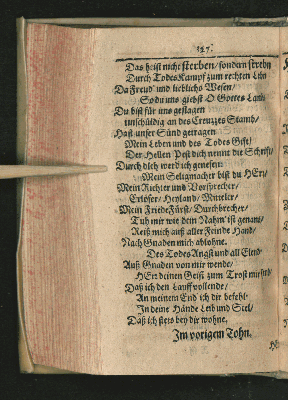 127.
Das heist nicht sterben/ sondern strebn
Durch Todes Kampf zum rechten Lebn
Da Freud und lieblichs Wesen/
So du uns giebst O Gottes Lamb
Du bist für uns geslagen
unschüldig an des Creutzes Stamb/
Hast unser Sünd getragen
Mein Leben und des Todes Gift/
Der Hellen Pest dich nennt die Schrift/
Durch dich werd ich genesen.
Mein Seligmacher bist du HErr/
Mein Richter und Vorsprecher/
Erlöser/ Heyland/ Mitteler/
Mein FriedeFürst/ Durchbrecher/
Tuh mir wie dein Nahm' ist genant/
Reiß mich auß aller Feinde Hand/
Nach Gnaden mich ablohne.
Des Todes Angst und all Elend
Auß Gnaden von mir wende/
HErr deinen Geist zum Trost mir send/
Daß ich den Lauff vollende/
An meinem End ich dir befehl
In deine Hände Leib und Seel/
Daß ich stets bey dir wohne.
Im vorigem Tohn.